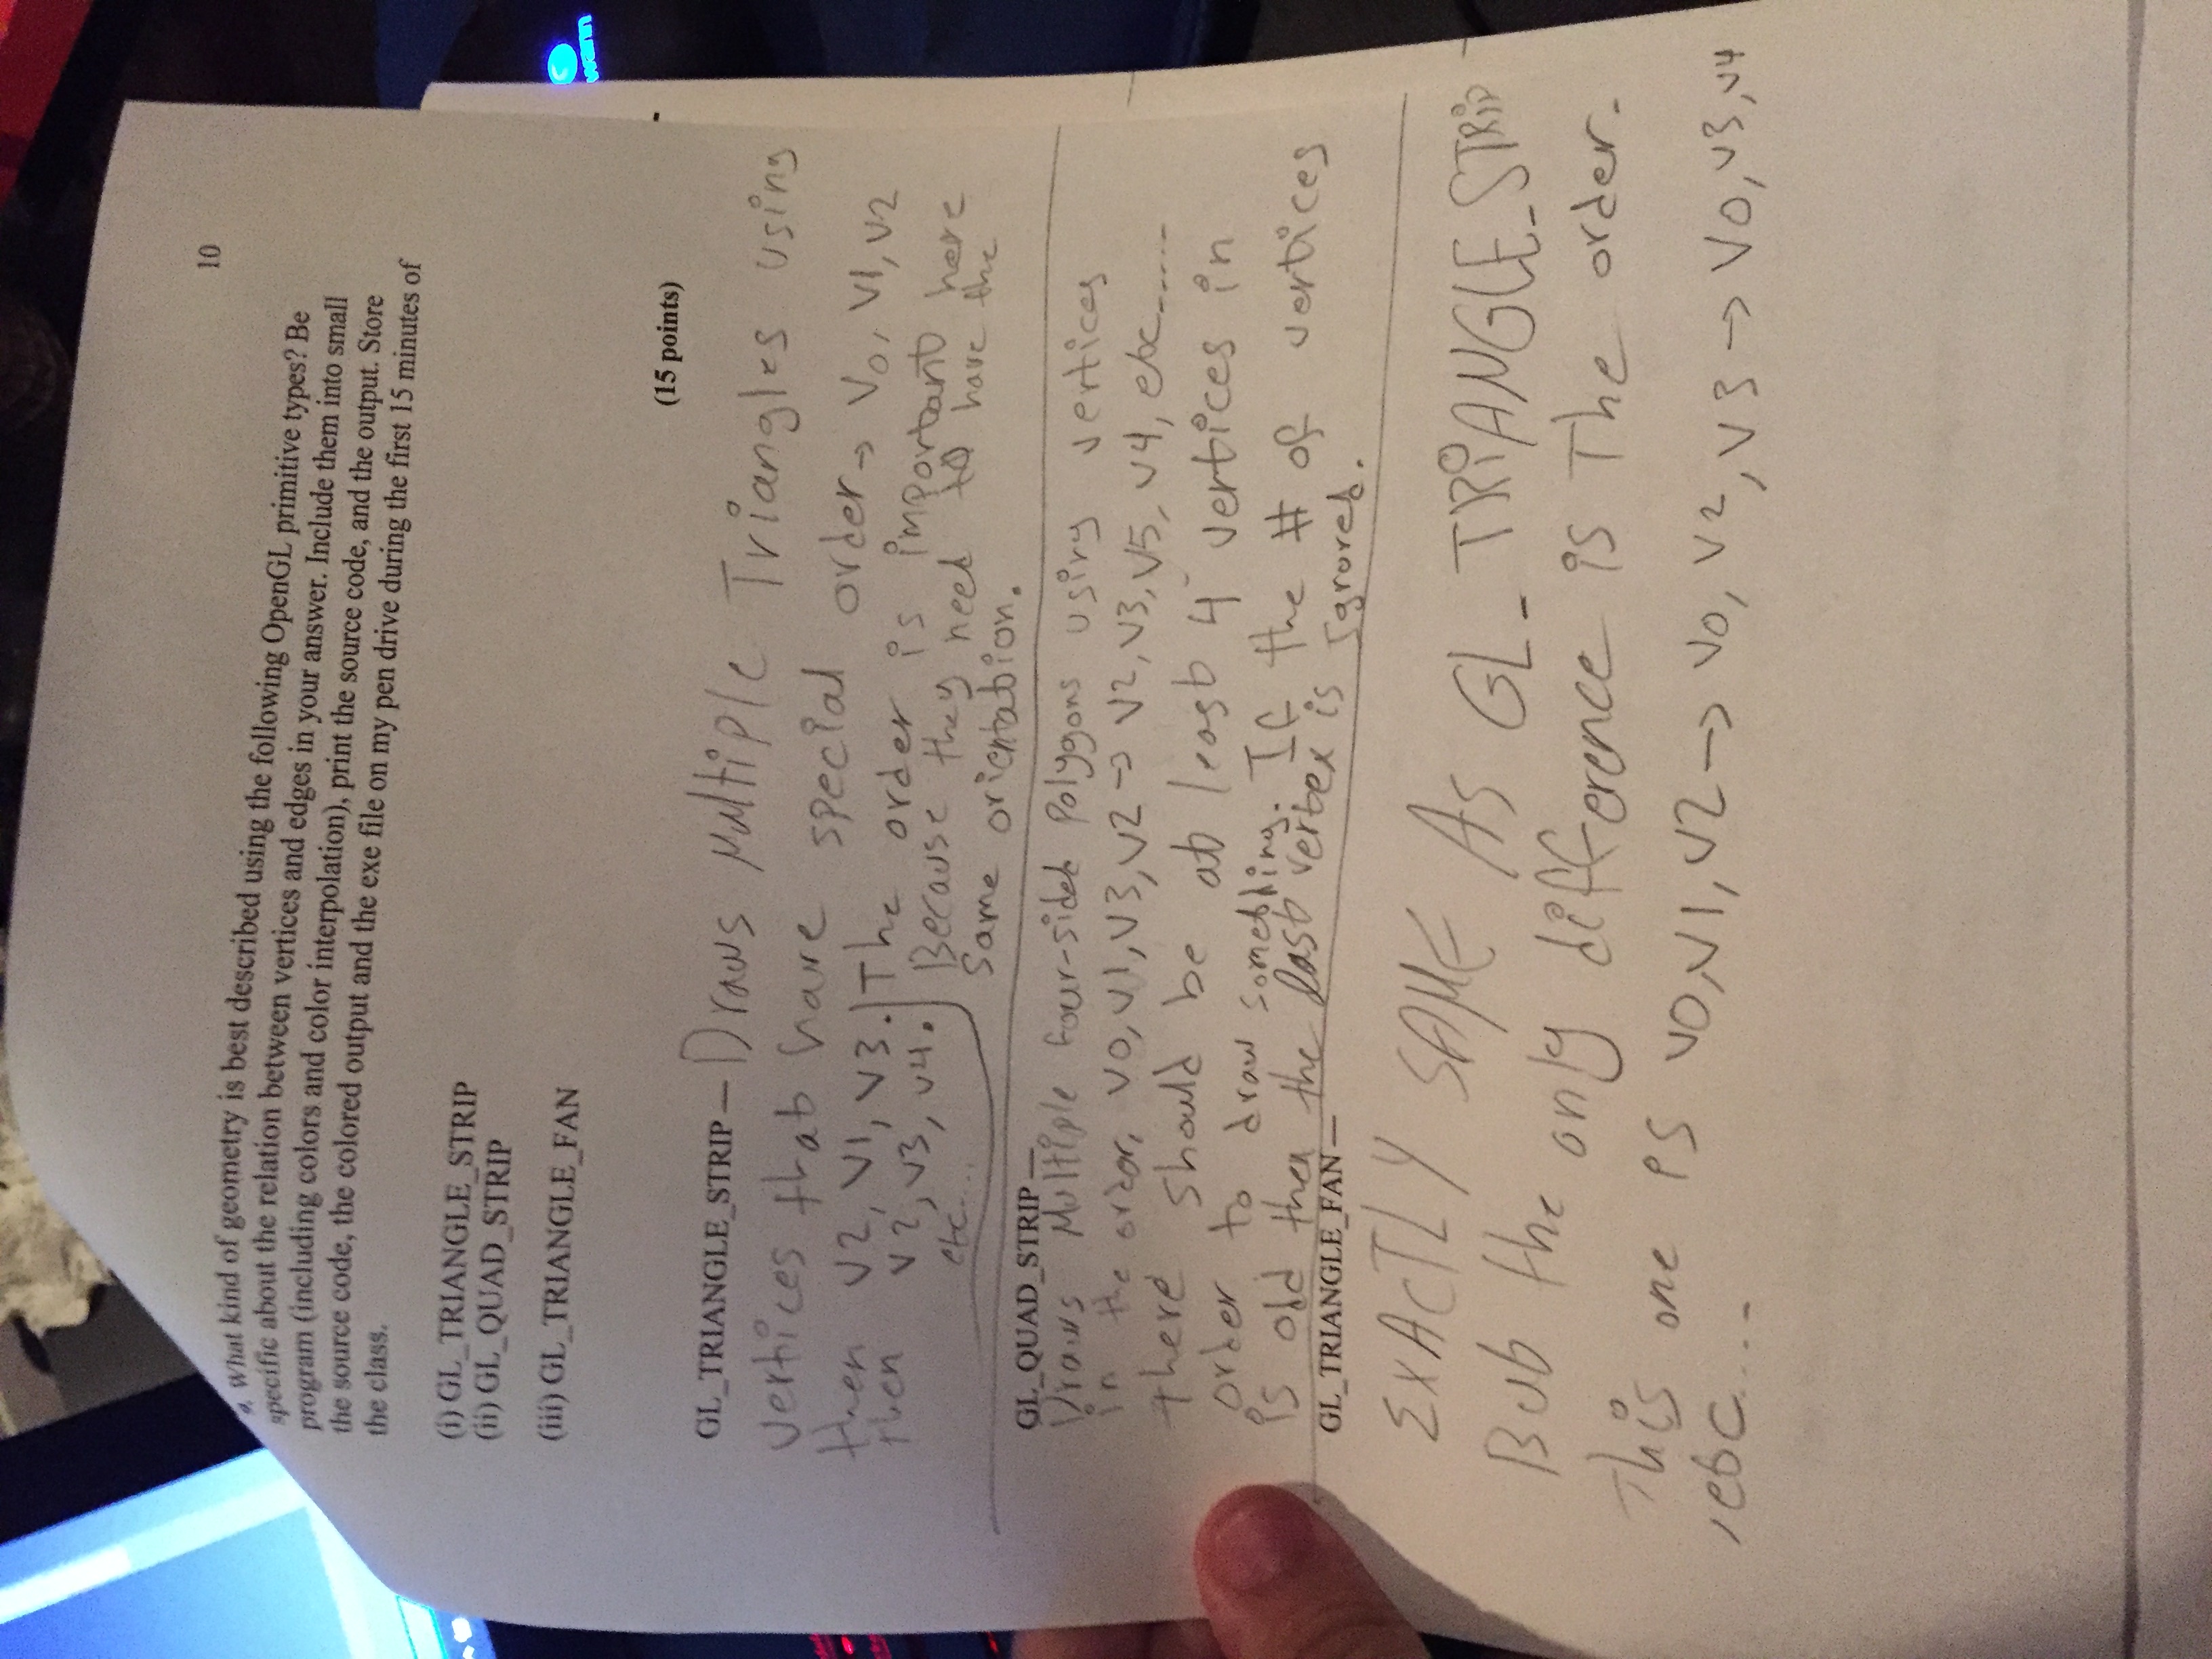 10
What kind of geometry is best described using the following OpenGL primitive types? Be
specific about the relation between vertices and edges in your answer. Include them into small
program (including colors and color interpolation), print the source code, and the output. Store
the source code, the colored output and the exe file on my pen drive during the first 15 minutes of
the class.
(i) GL_TRIANGLE_STRIP
(ii) GL_QUAD_STRIP
(iii) GL_TRIANGLE_FAN
(15 points)
GL_TRIANGLE_STRIP — Draws Multiple Triangles using
vertices that have special order → V0, V1, V2
then V2, V1, V3.
then V2, V3, V4.
etc...
The order is important here
Because they need to have the
Same orientation.
GL_QUAD_STRIP —
Draws Multiple four-sided Polygons using vertices
in the order, V0, V1, V3, V2 → V2, V3, V5, V4, etc.....
there should be at least 4 vertices in
order to draw something. If the # of vertices
is odd then the last vertex is ignored.
GL_TRIANGLE_FAN —
EXACTLY SAME AS GL_TRiANGLE_STRiP
But the only difference is The order.
This one is V0, V1, V2 → V0, V2, V3 → V0, V3, V4
, etc....